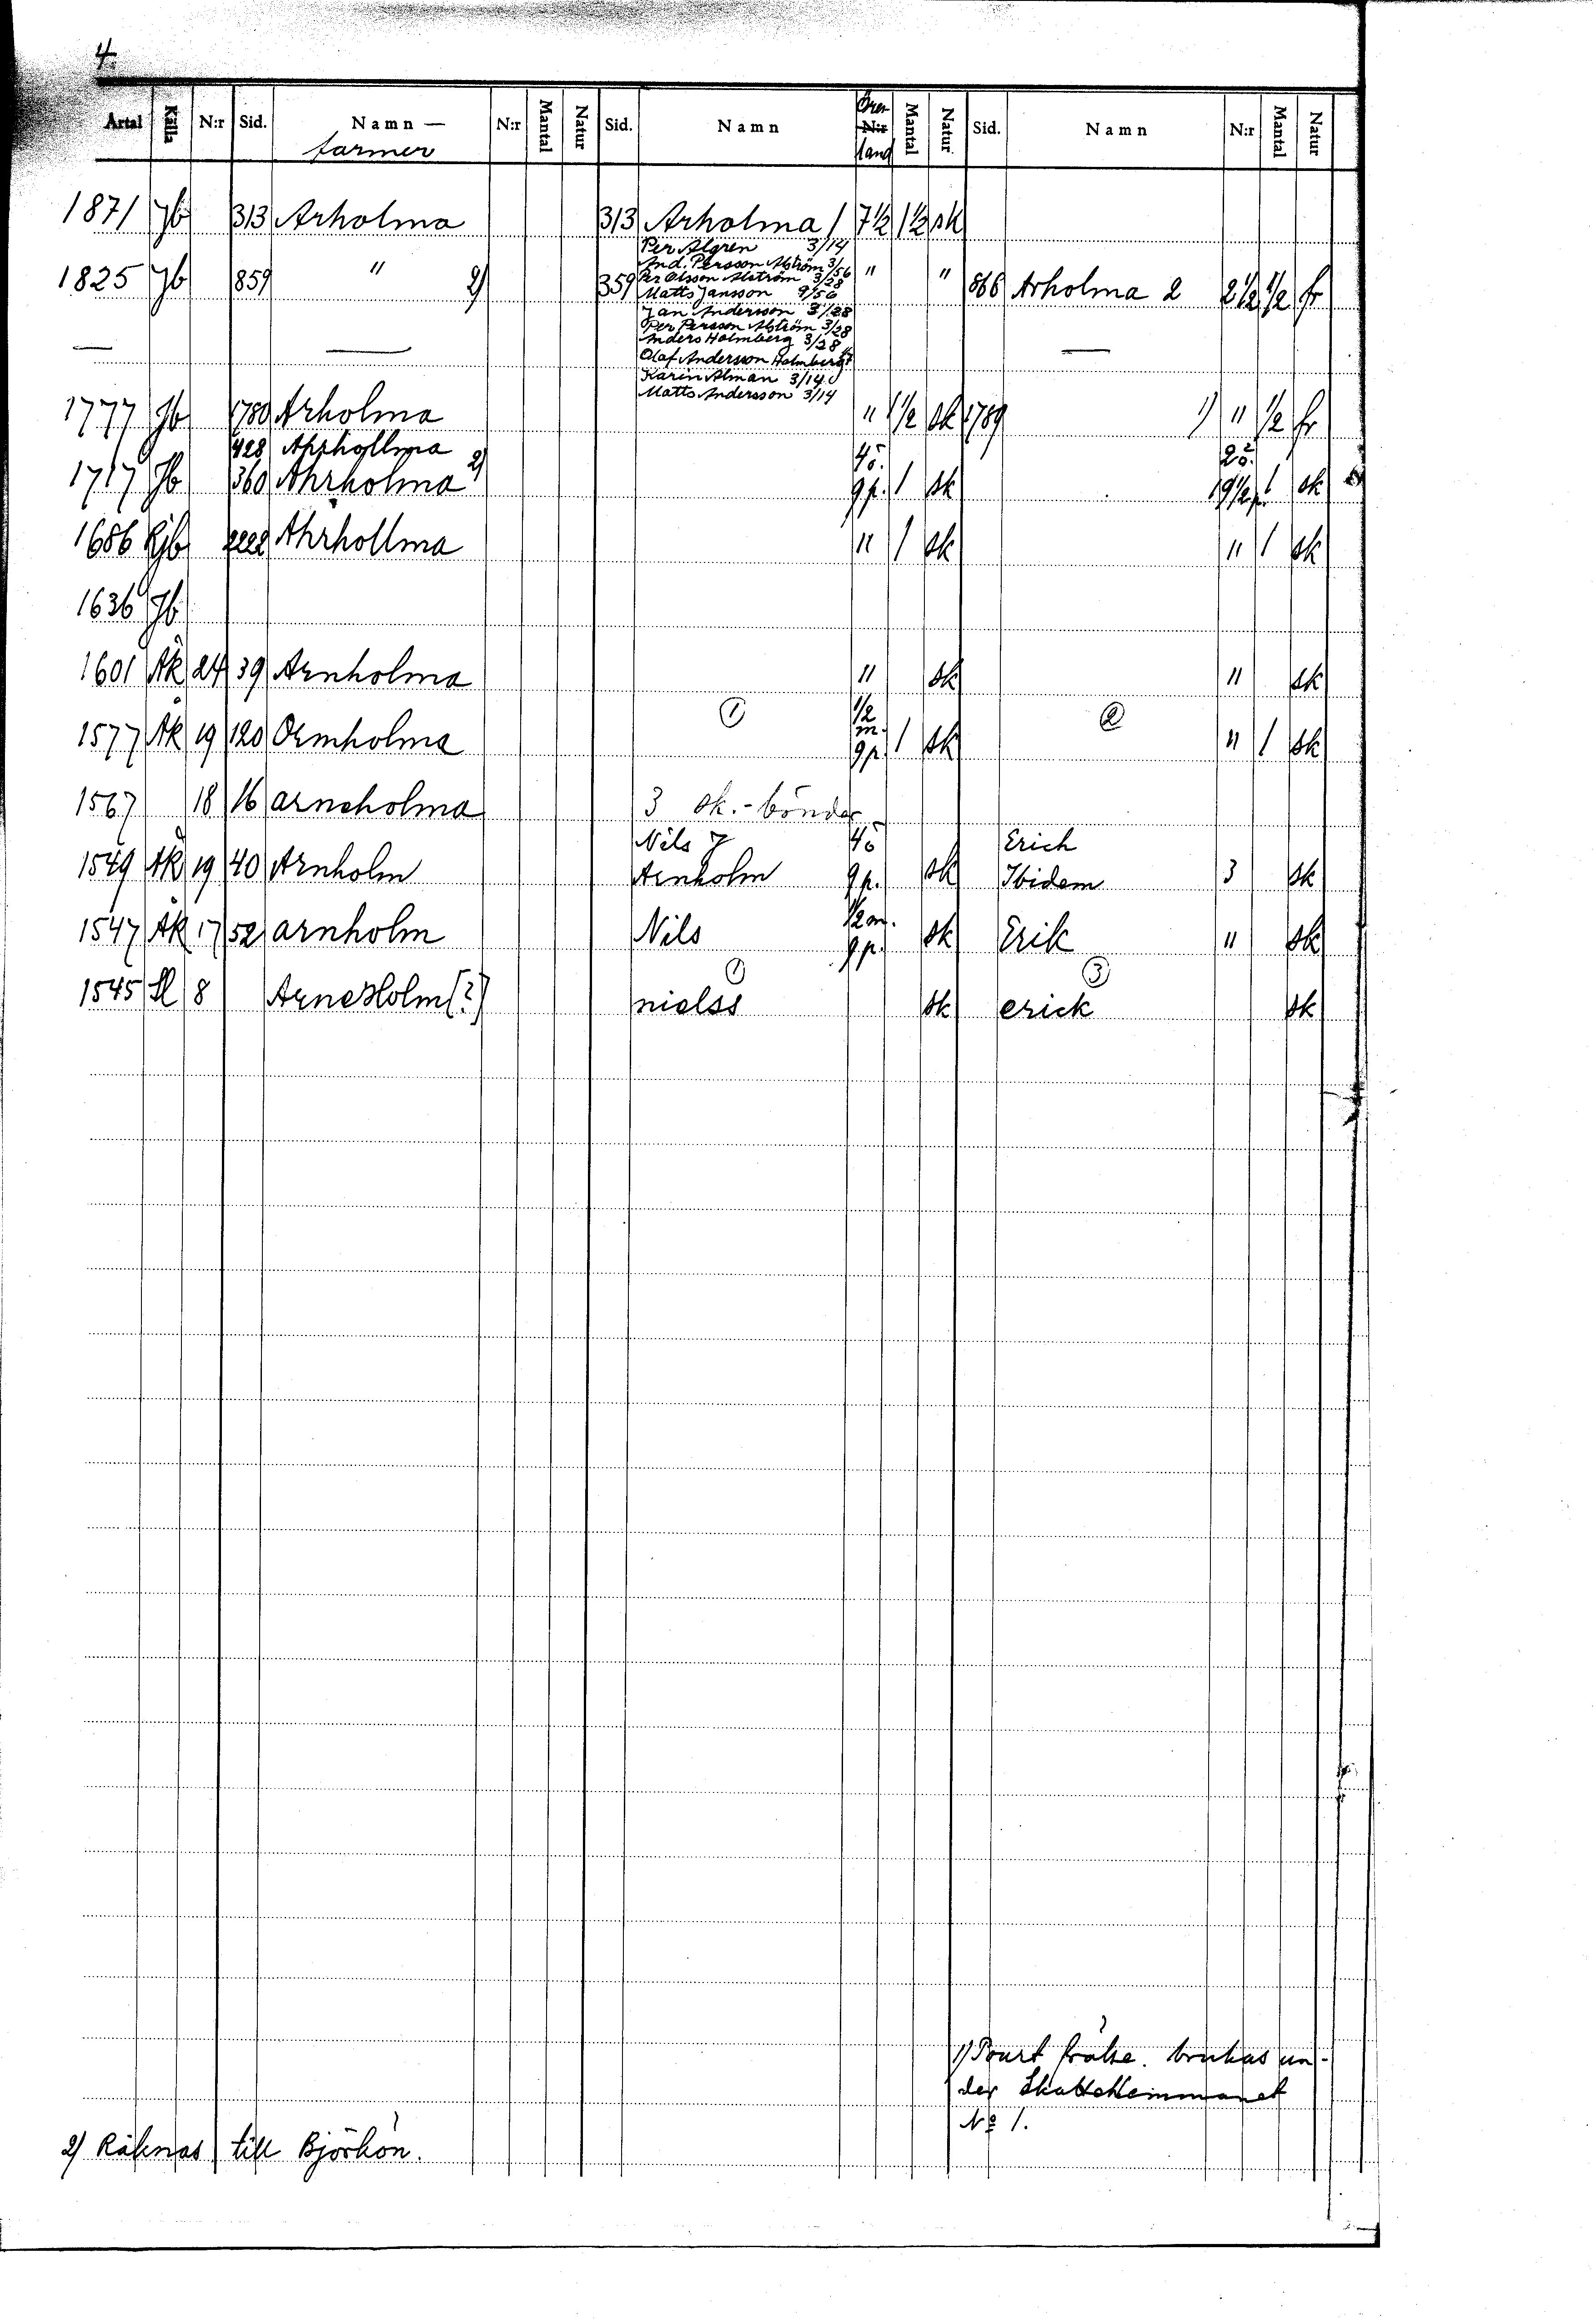 4.
Artal Källa N:r Sid. Namn — N:r Mantal Natur Sid. Namn Öres- N:r land Mantal Natur Sid. Namn N:r Mantal Natur
1871 Jb 313 Arholma 313 Arholma 1 7½ 1½ sk
Per Algren 3/14
And. Persson Alström 3/56
1825 Jb 859 " 2) 359 Per Olsson Alström 3/28 " " 866 Arholma 2 2½ ½ fr
Matts Jansson 9/56
Jan Andersson 3/28
Per Persson Alström 3/28
Anders Holmberg 3/28
— — Olof Andersson Holmberg —
Karin Alman 3/14
Matts Andersson 3/14
1777 Jb 1780 Arholma " 1½ sk 1789 1) " ½ fr
428 Ahrhollma 4ö. 2ö.
1717 Jb 360 Ahrholma 2) 9p. 1 sk 19½p. 1 sk
1686 Rjb 2222 Ahrhollma " 1 sk " 1 sk
1636 Jb
1601 Åk 24 39 Arnholma " sk " sk
1577 Åk 19 120 Ormholma ① ½ m. 9p. 1 sk ② " 1 sk
1567 18 16 arneholma 3 sk.-bönder
Nils J 4ö Erich
1549 Åk 19 40 Arnholm Arnholm 9p. sk Ibidem 3 sk
1547 Åk 17 52 arnholm Nils ½ m. 9p. sk Erik " sk
① ③
1545 Sl 8 ArnesHolm [?] nielss sk erick sk
1) Tourt frälse. brukas un-
der Skattehemmanet
No 1.
2) Räknas till Björkön.